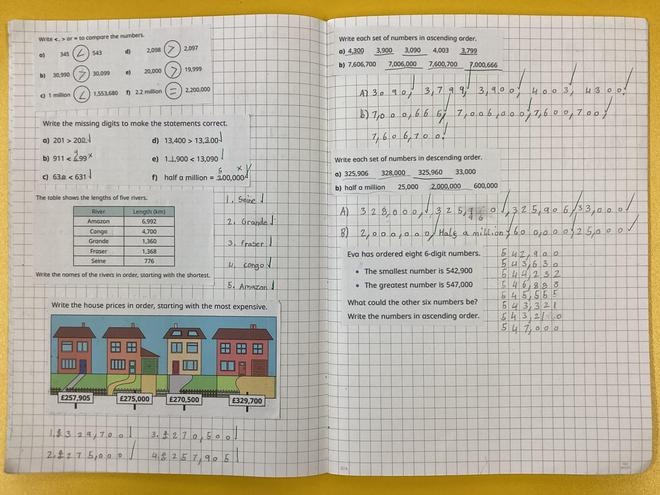 Write <, > or = to compare the numbers.
a) 345 < 543 d) 2,098 > 2,097
b) 30,990 > 30,099 e) 20,000 > 19,999
c) 1 million < 1,553,680 f) 2.2 million = 2,200,000
Write the missing digits to make the statements correct.
d) 13,400 > 13,200
e) 1 1,900 < 13,090
The table shows the lengths of five rivers.
River Length (km)
Amazon 6,992
Congo 4,700
Grande 1,360
Fraser 1,368
Seine 776
Write the names of the rivers in order, starting with the shortest.
1. Seine
2. Grande
3. Fraser
4. Congo
5. Amazon
Write the house prices in order, starting with the most expensive.
£257,905 £275,000 £270,500 £329,700
1. £329,700 3. £270,500
2. £275,000 4. £257,905
Write each set of numbers in ascending order.
a) 4,300 3,900 3,090 4,003 3,799
b) 7,606,700 7,006,000 7,600,700 7,000,666
A) 3090, 3,799, 3,900, 4003, 4300
b) 7,000,666, 7,006,000, 7,600,700,
7,606,700
Write each set of numbers in descending order.
a) 325,906 328,000 325,960 33,000
b) half a million 25,000 2,000,000 600,000
Eva has ordered eight 6-digit numbers.
• The smallest number is 542,900
• The greatest number is 547,000
What could the other six numbers be?
Write the numbers in ascending order.
542,900
547,000